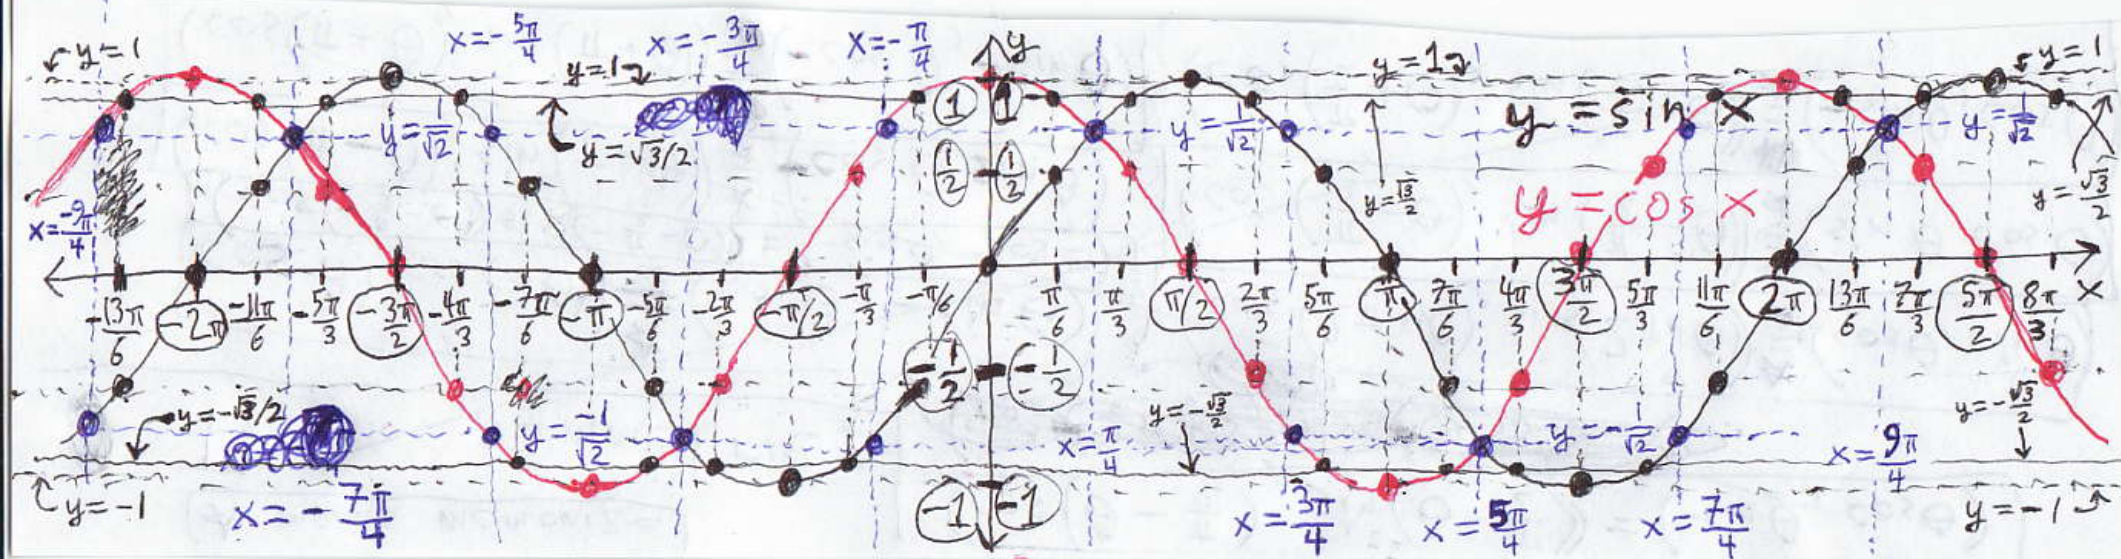 y=1
x=-5π/4
x=-3π/4
x=-π/4
y
y=1
y=1
y=1
y=1/√2
y=√3/2
1
1
y=1/√2
y=√3/2
y=sin x
y=1/√2
1/2
1/2
y=cos x
y=√3/2
x=-9π/4
-13π/6
-2π
-11π/6
-5π/3
-3π/2
-4π/3
-7π/6
-π
-5π/6
-2π/3
-π/2
-π/3
-π/6
π/6
π/3
π/2
2π/3
5π/6
π
7π/6
4π/3
3π/2
5π/3
11π/6
2π
13π/6
7π/3
5π/2
8π/3
x
-1/2
-1/2
y=-√3/2
y=-1/√2
x=π/4
y=-√3/2
y=-1/√2
x=9π/4
y=-√3/2
y=-1
x=-7π/4
-1
-1
x=3π/4
x=5π/4
x=7π/4
y=-1